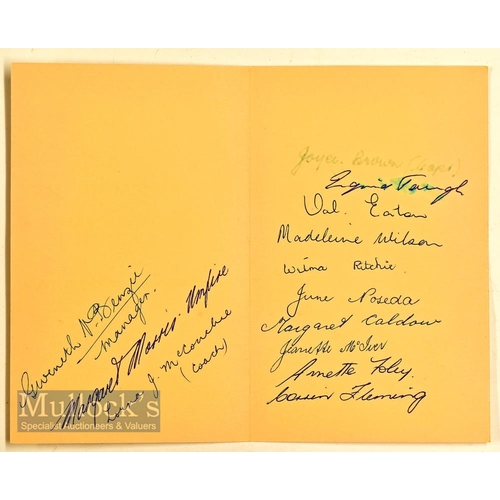 Gweneth N. Benzie
Manager.
Margaret Morris. Umpire
J. McConchie
(Coach)
Joyce. Brown (Capt)
Val. Eaton
Madeleine Wilson
Wilma Ritchie.
June Poseda
Margaret Caldow
Jeanette McIver
Annette Foley.
Fleming
Mullock's
Specialist Auctioneers & Valuers